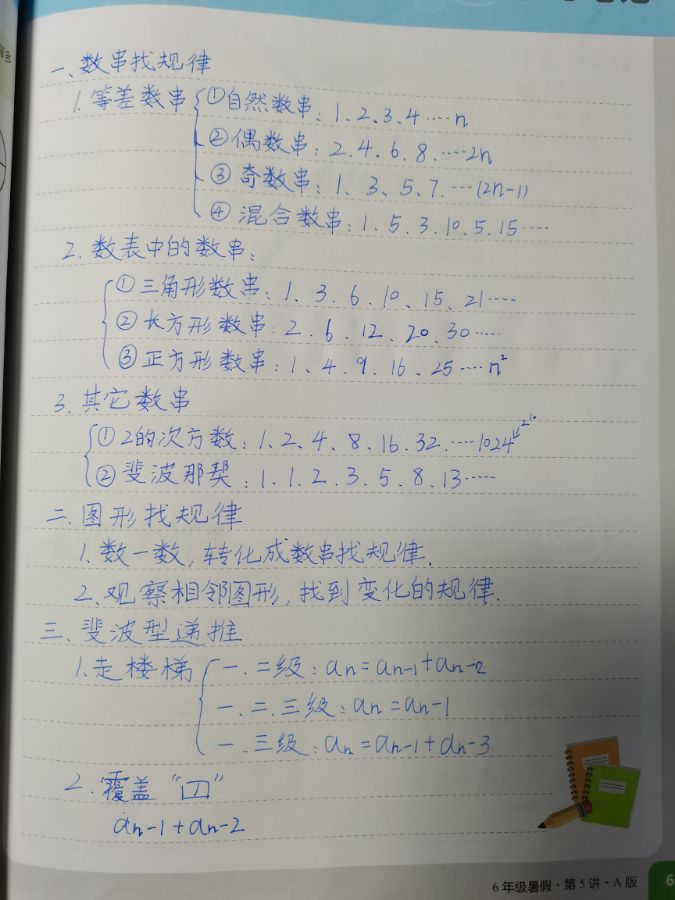 一、数串找规律
1.等差数串 ①自然数串:1、2、3、4……n
②偶数串:2、4、6、8……2n
③奇数串:1、3、5、7……(2n-1)
④混合数串:1、5、3、10、5、15……
2.数表中的数串:
①三角形数串:1、3、6、10、15、21……
②长方形数串:2、6、12、20、30……
③正方形数串:1、4、9、16、25……n²
3.其它数串
①2的次方数:1、2、4、8、16、32……1024 2¹⁰
②斐波那契:1、1、2、3、5、8、13……
二、图形找规律
1.数一数,转化成数串找规律.
2.观察相邻图形,找到变化的规律.
三、斐波型递推
1.走楼梯 一.二级:an=an-1+an-2
一.二.三级:an=an-1
一.三级:an=an-1+an-3
2.覆盖“ ”
an-1+an-2
6年级暑假·第5讲·A版
6